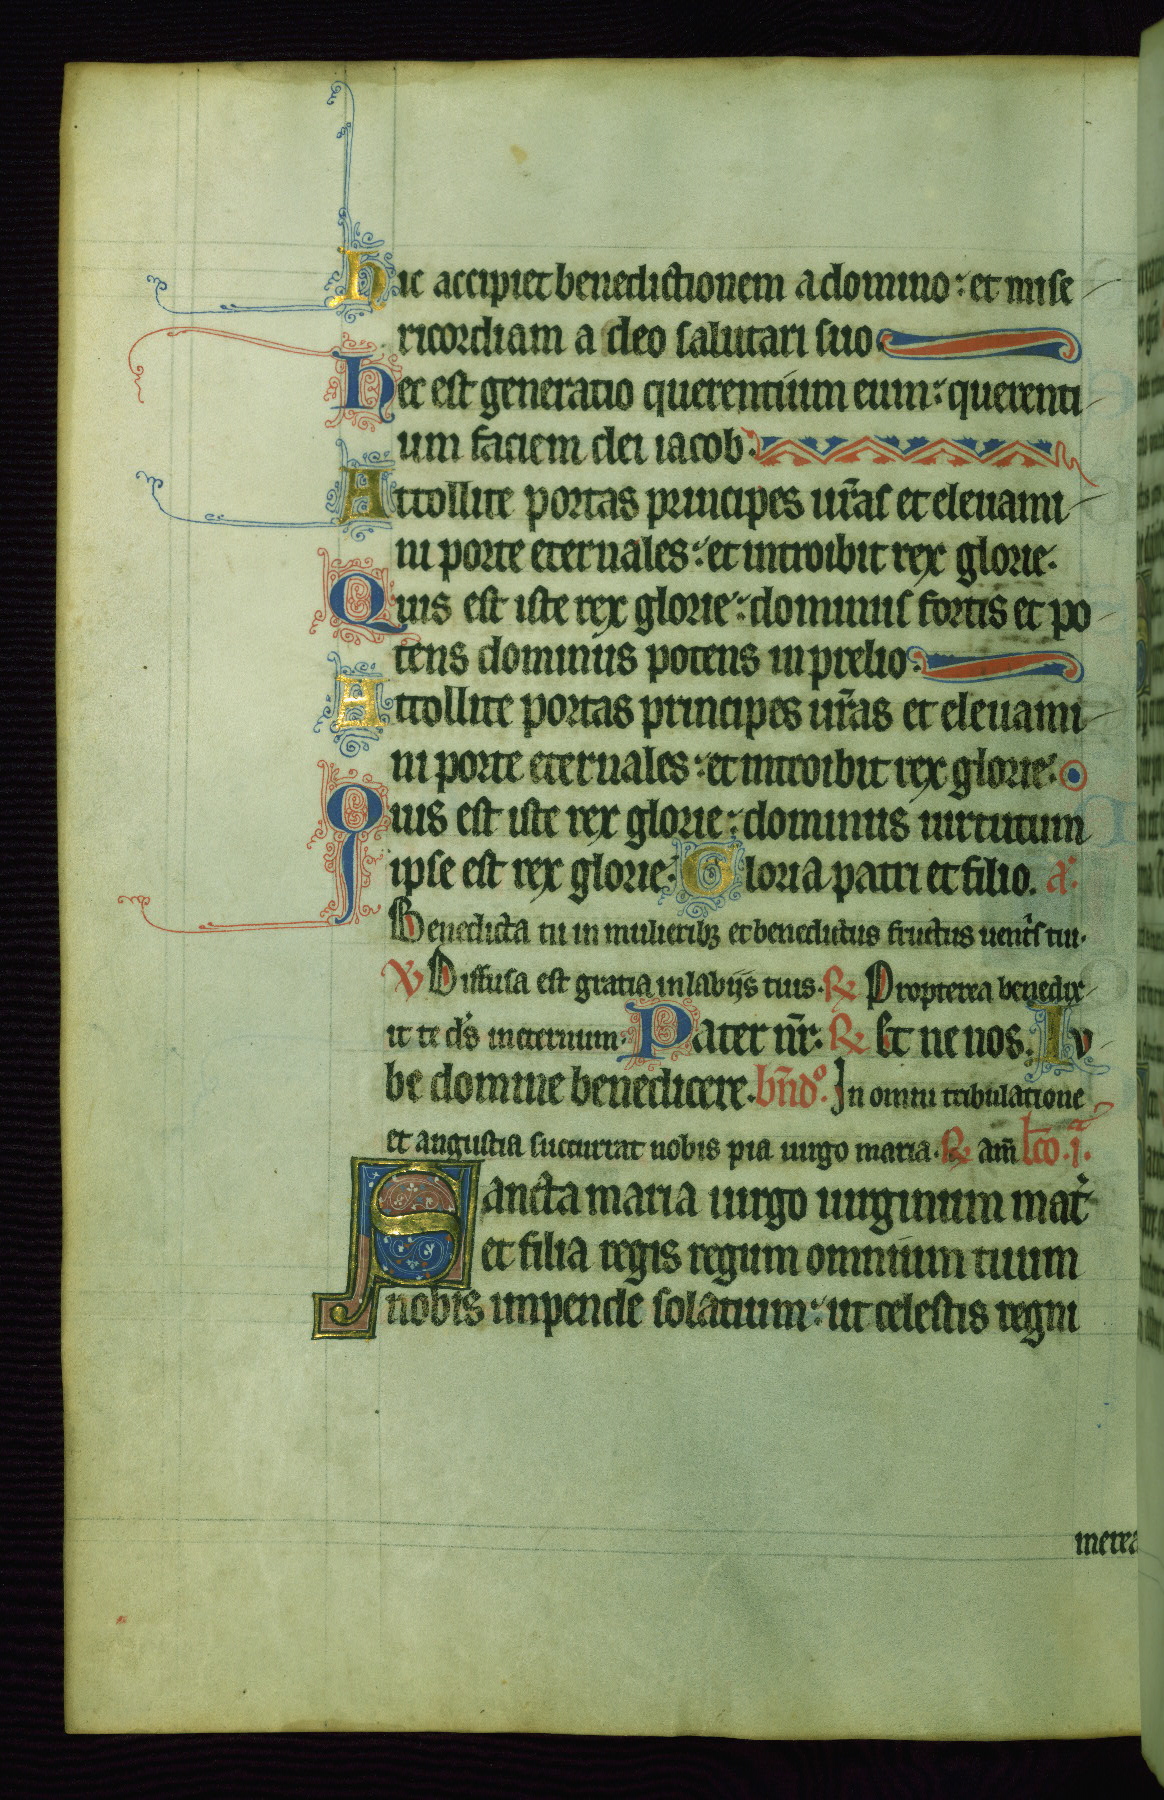 Hic accipiet benedictionem a domino: et mise
ricordiam a deo salutari suo
Hec est generatio querentium eum: querenti
um faciem dei iacob.
Attollite portas principes ur̃as et eleuami
ni porte eternales: et introibit rex glorie.
Quis est iste rex glorie: dominus fortis et po
tens dominus potens in prelio.
Attollite portas principes ur̃as et eleuami
ni porte eternales: et introibit rex glorie.
Quis est iste rex glorie: dominus uirtutum
ipse est rex glorie. Gloria patri et filio. a.
Benedicta tu in mulieribꝫ et benedictus fructus uent̾s tui.
℣ Diffusa est gratia in labijs tuis. ℞ Propterea benedix
it te ds̾ in eternum. Pater nr̃. ℞ Et ne nos. Iu
be domine benedicere. bñdo. In omni tribulatione
et angustia succurrat nobis pia uirgo maria. ℞ am̃ lc̃o .i.a
Sancta maria uirgo uirginum mat̾
et filia regis regum omnium tuum
nobis impende solatium: ut celestis regni
merea